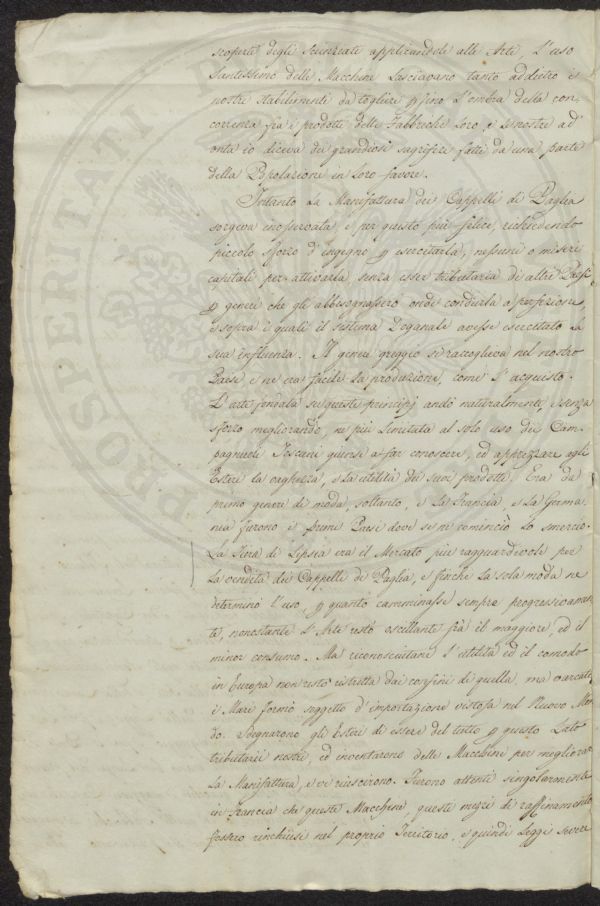 scoperte degli Scienziati applicandole alle Arti, L'uso
Santissimo delle Macchine Lasciavano tanto addietro i
nostri stabilimenti da togliere p fino L'ombra della con-
correnza fra i prodotti delle Fabbriche Loro, e Le nostre ad
onta io diceva dei grandiosi sagrifizi fatti da una parte
della Popolazione in Loro favore.
Intanto La Manifattura dei Cappelli di Paglia
sorgeva inosservata, e per questo più felice, richiedendo
piccolo sforzo d'ingegno p esercitarla, nessuni o miseri
capitali per attivarla, senza esser tributaria di altri Paesi
p generi che gli abbisognassero onde condurla a perfezione,
e sopra i quali il sistema Doganale avesse esercitato la
sua influenza. Il genere greggio si raccoglieva nel nostro
Paese, e ne era facile La produzione, come L'acquisto.
L'arte fondata su questi principj andò naturalmente, e senza
sforzo migliorando, ne più Limitata al solo uso dei Cam-
pagnuoli Toscani giunse a far conoscere, ed apprezzare agli
Esteri la vaghezza, e La utilità dei suoi prodotti. Era da
primo genere di moda, soltanto, e La Francia, e La Germa
nia furono i primi Paesi dove se ne cominciò Lo smercio.
La Fiera di Lipsia era il Mercato più ragguardevole per
La vendita dei Cappelli di Paglia, e finche La sola moda ne
determinò l'uso, p quanto camminasse sempre progressivamen
te, nonostante L'Arte restò oscillante frà il maggiore, ed il
minor consumo. Ma riconosciutane L'utilità ed il comodo
in Europa non restò ristretta dai confini di quella, ma varcati
i Mari formò soggetto d'importazione vistosa nel Nuovo Mon
do. Sdegnarono gli Esteri di essere del tutto p questo Lato
tributarii nostri, ed inventarono delle Macchine per migliorar
La Manifattura, e vi riuscirono. Furono attenti singolarmente
in Francia che queste Macchine, questi mezzi di raffinamento
fossero rinchiusi nel proprio Territorio, e quindi Leggi severe
PROSPERITATI